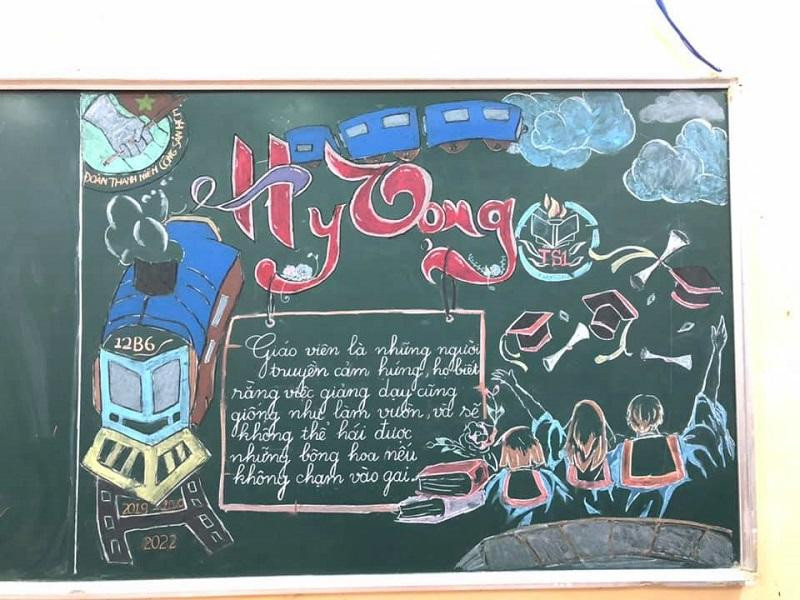 ĐOÀN THANH NIÊN CỘNG SẢN HCM
Hy Vọng
TS1
12B6
Giáo viên là những người
truyền cảm hứng, họ biết
rằng việc giảng dạy cũng
giống như làm vườn, và sẽ
không thể hái được
những bông hoa nếu
không chạm vào gai...
2019 -
2022